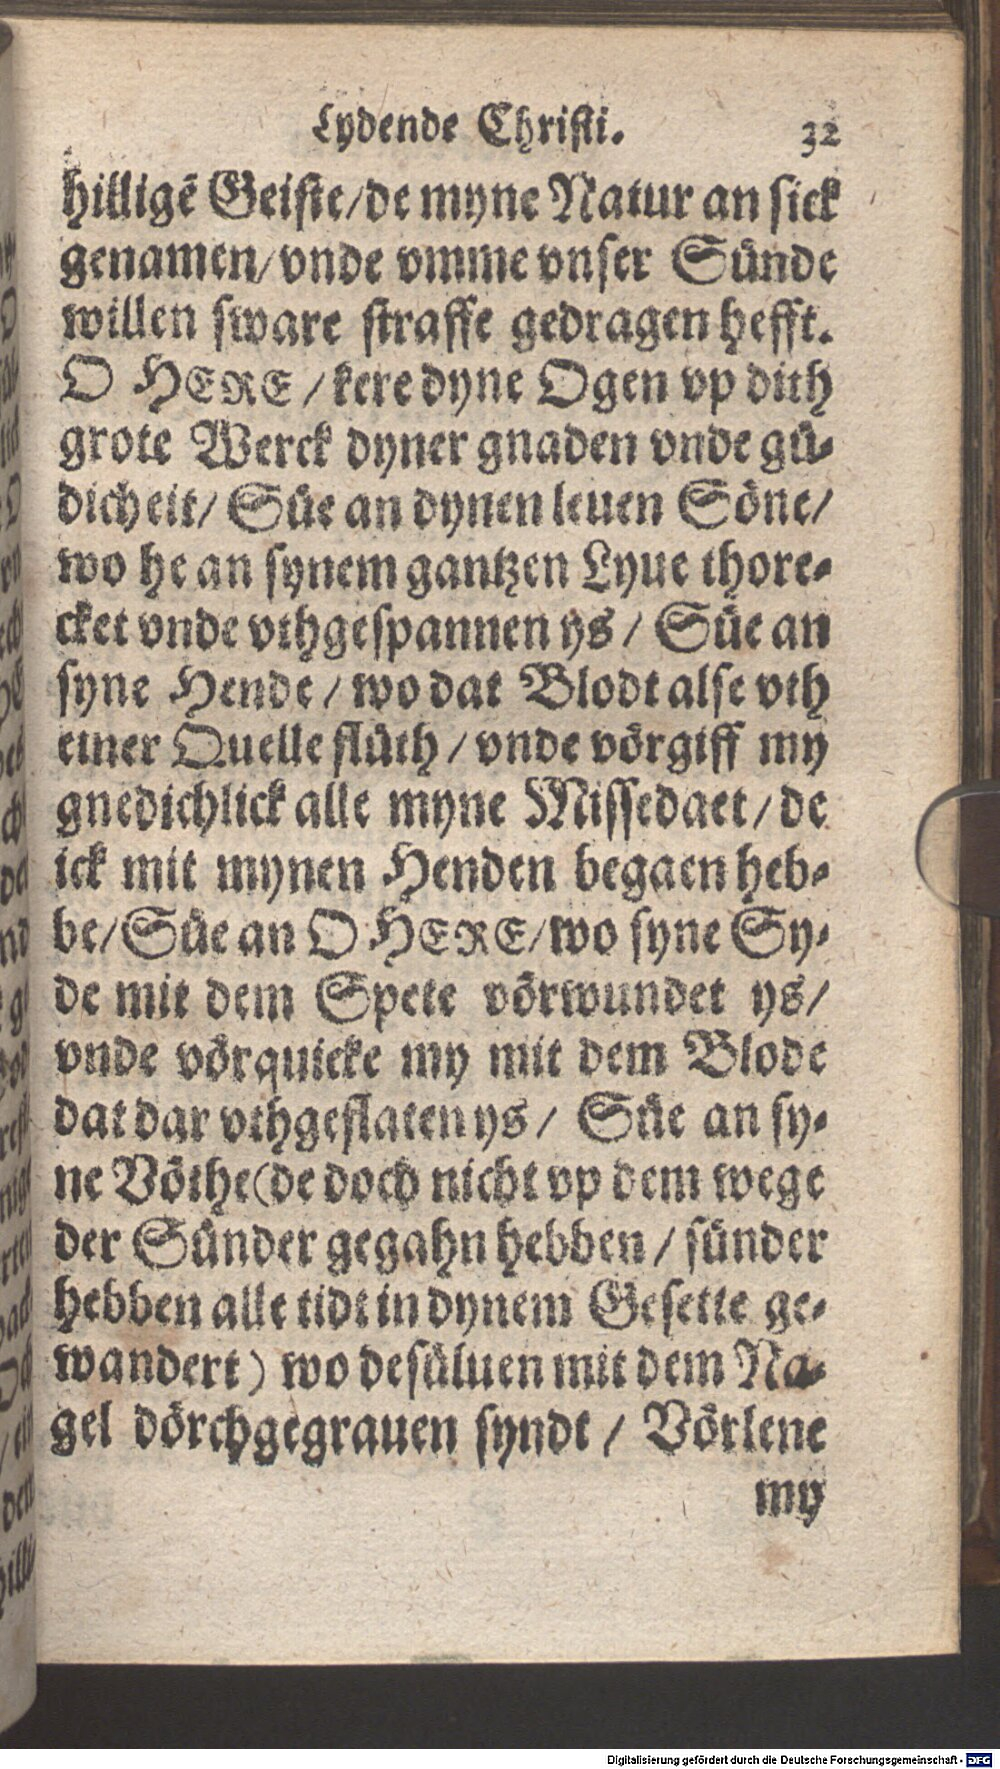 Lydende Christi. 32
hilligẽ Geiste/de myne Natur an sick
genamen/vnde vmme vnser Sünde
willen sware straffe gedragen hefft.
O HERE /kere dyne Ogen vp dith
grote Werck dyner gnaden vnde gü-
dicheit/ Süe an dynen leuen Söne/
wo he an synem gantzen Lyue thore-
cket vnde vthgespannen ys / Süe an
syne Hende / wo dat Blodt alse vth
einer Quelle flüth / vnde vörgiff my
gnedichlick alle myne Missedaet/de
ick mit mynen Henden begaen heb-
be/Süe an O HERE/wo syne Sy-
de mit dem Spete vörwundet ys/
vnde vörquicke my mit dem Blode
dat dar vthgeflaten ys / Süe an sy-
ne Vöthe(de doch nicht vp dem wege
der Sünder gegahn hebben / sünder
hebben alle tidt in dynem Gesette ge-
wandert) wo desüluen mit dem Na-
gel dörchgegrauen syndt / Vörlene
my
Digitalisierung gefördert durch die Deutsche Forschungsgemeinschaft - DFG